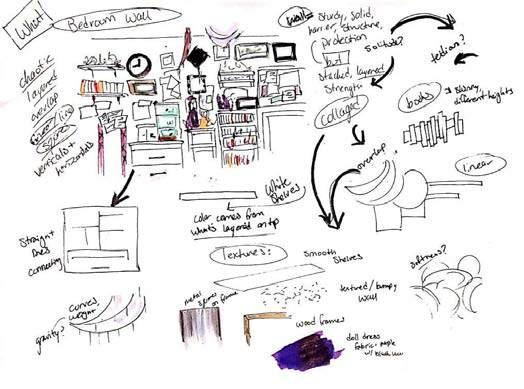 What?
Bedroom Wall
chaotic
layered
overlap
verticals +
horizontals
Wall:
Sturdy, solid,
barrier, structure,
protection
but
stacked, layered
strength
solitude?
tension?
collaged
books
skinny,
different heights
overlap
linear
Straight
lines
connecting
White
Shelves
color comes from
what's layered on top
Textures:
Smooth
Shelves
textured/bumpy
wall
softness?
curves
weight
gravity?
metal
wood frames
doll dress
fabric: purple